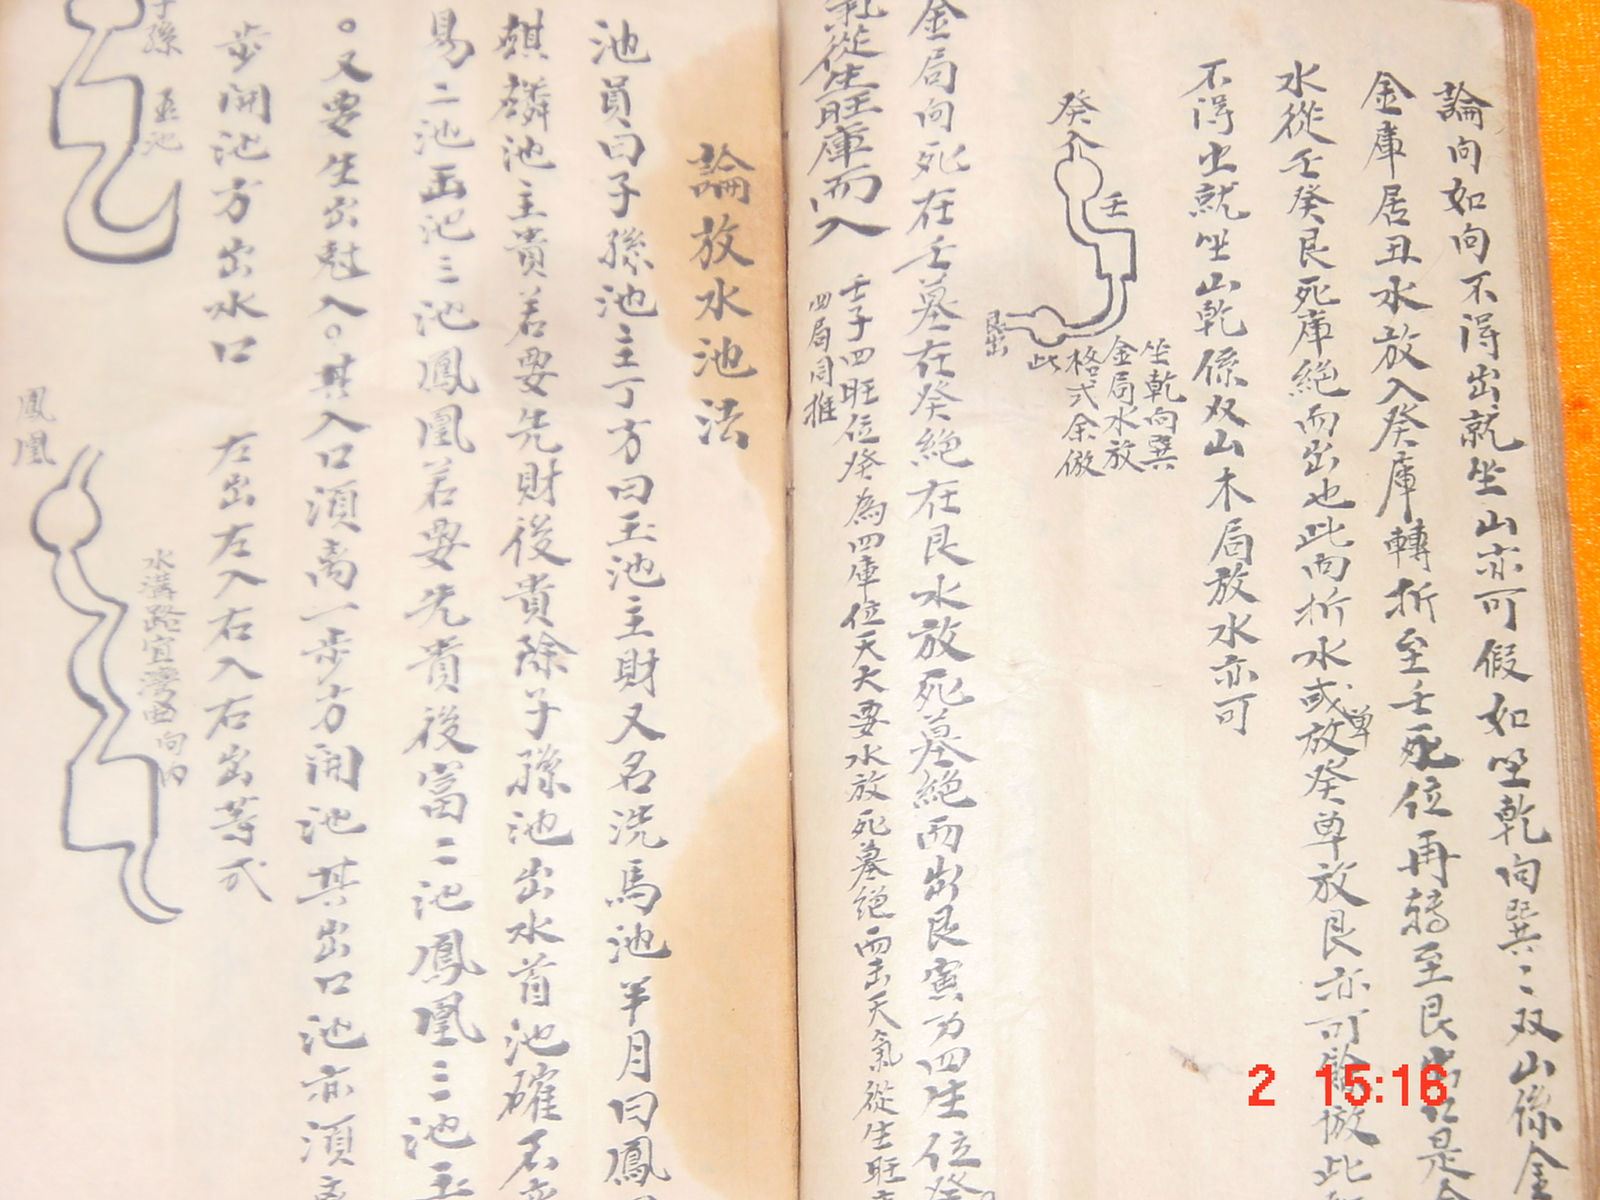 論向如向不得出就坐山亦可假如坐乾向巽〻双山係金
金庫居丑水放入癸庫轉折至壬死位再轉至艮出口是
水從壬癸艮死庫絕而出也此而折水或放癸单放艮亦可餘倣此
单
不得出就坐山乾係双山木局放水亦可
癸入
壬
艮出
坐乾向巽
金局水放
格式余倣
此
金局向死在壬墓在癸絕在艮水放死墓絕而出艮寅乃四生位癸
氣從生旺庫而入
壬子四旺位癸為四庫位天大要水放死墓絕而去天氣從生旺
四局同推
論放水池法
池員曰子孫池主丁方曰玉池主財又名洗馬池半月曰鳳
麒麟池主貴若要先財後貴除子孫池出水首池確不
易二池玉池三池鳳凰若要先貴後富二池鳳凰三池玉
○又要生出尅入○其入口須离一步方開池其出口池亦須
步開池方出水口 左出左入右入右出等式
子孫
玉池
鳳凰
水溝路宜灣曲向内
2 15:16